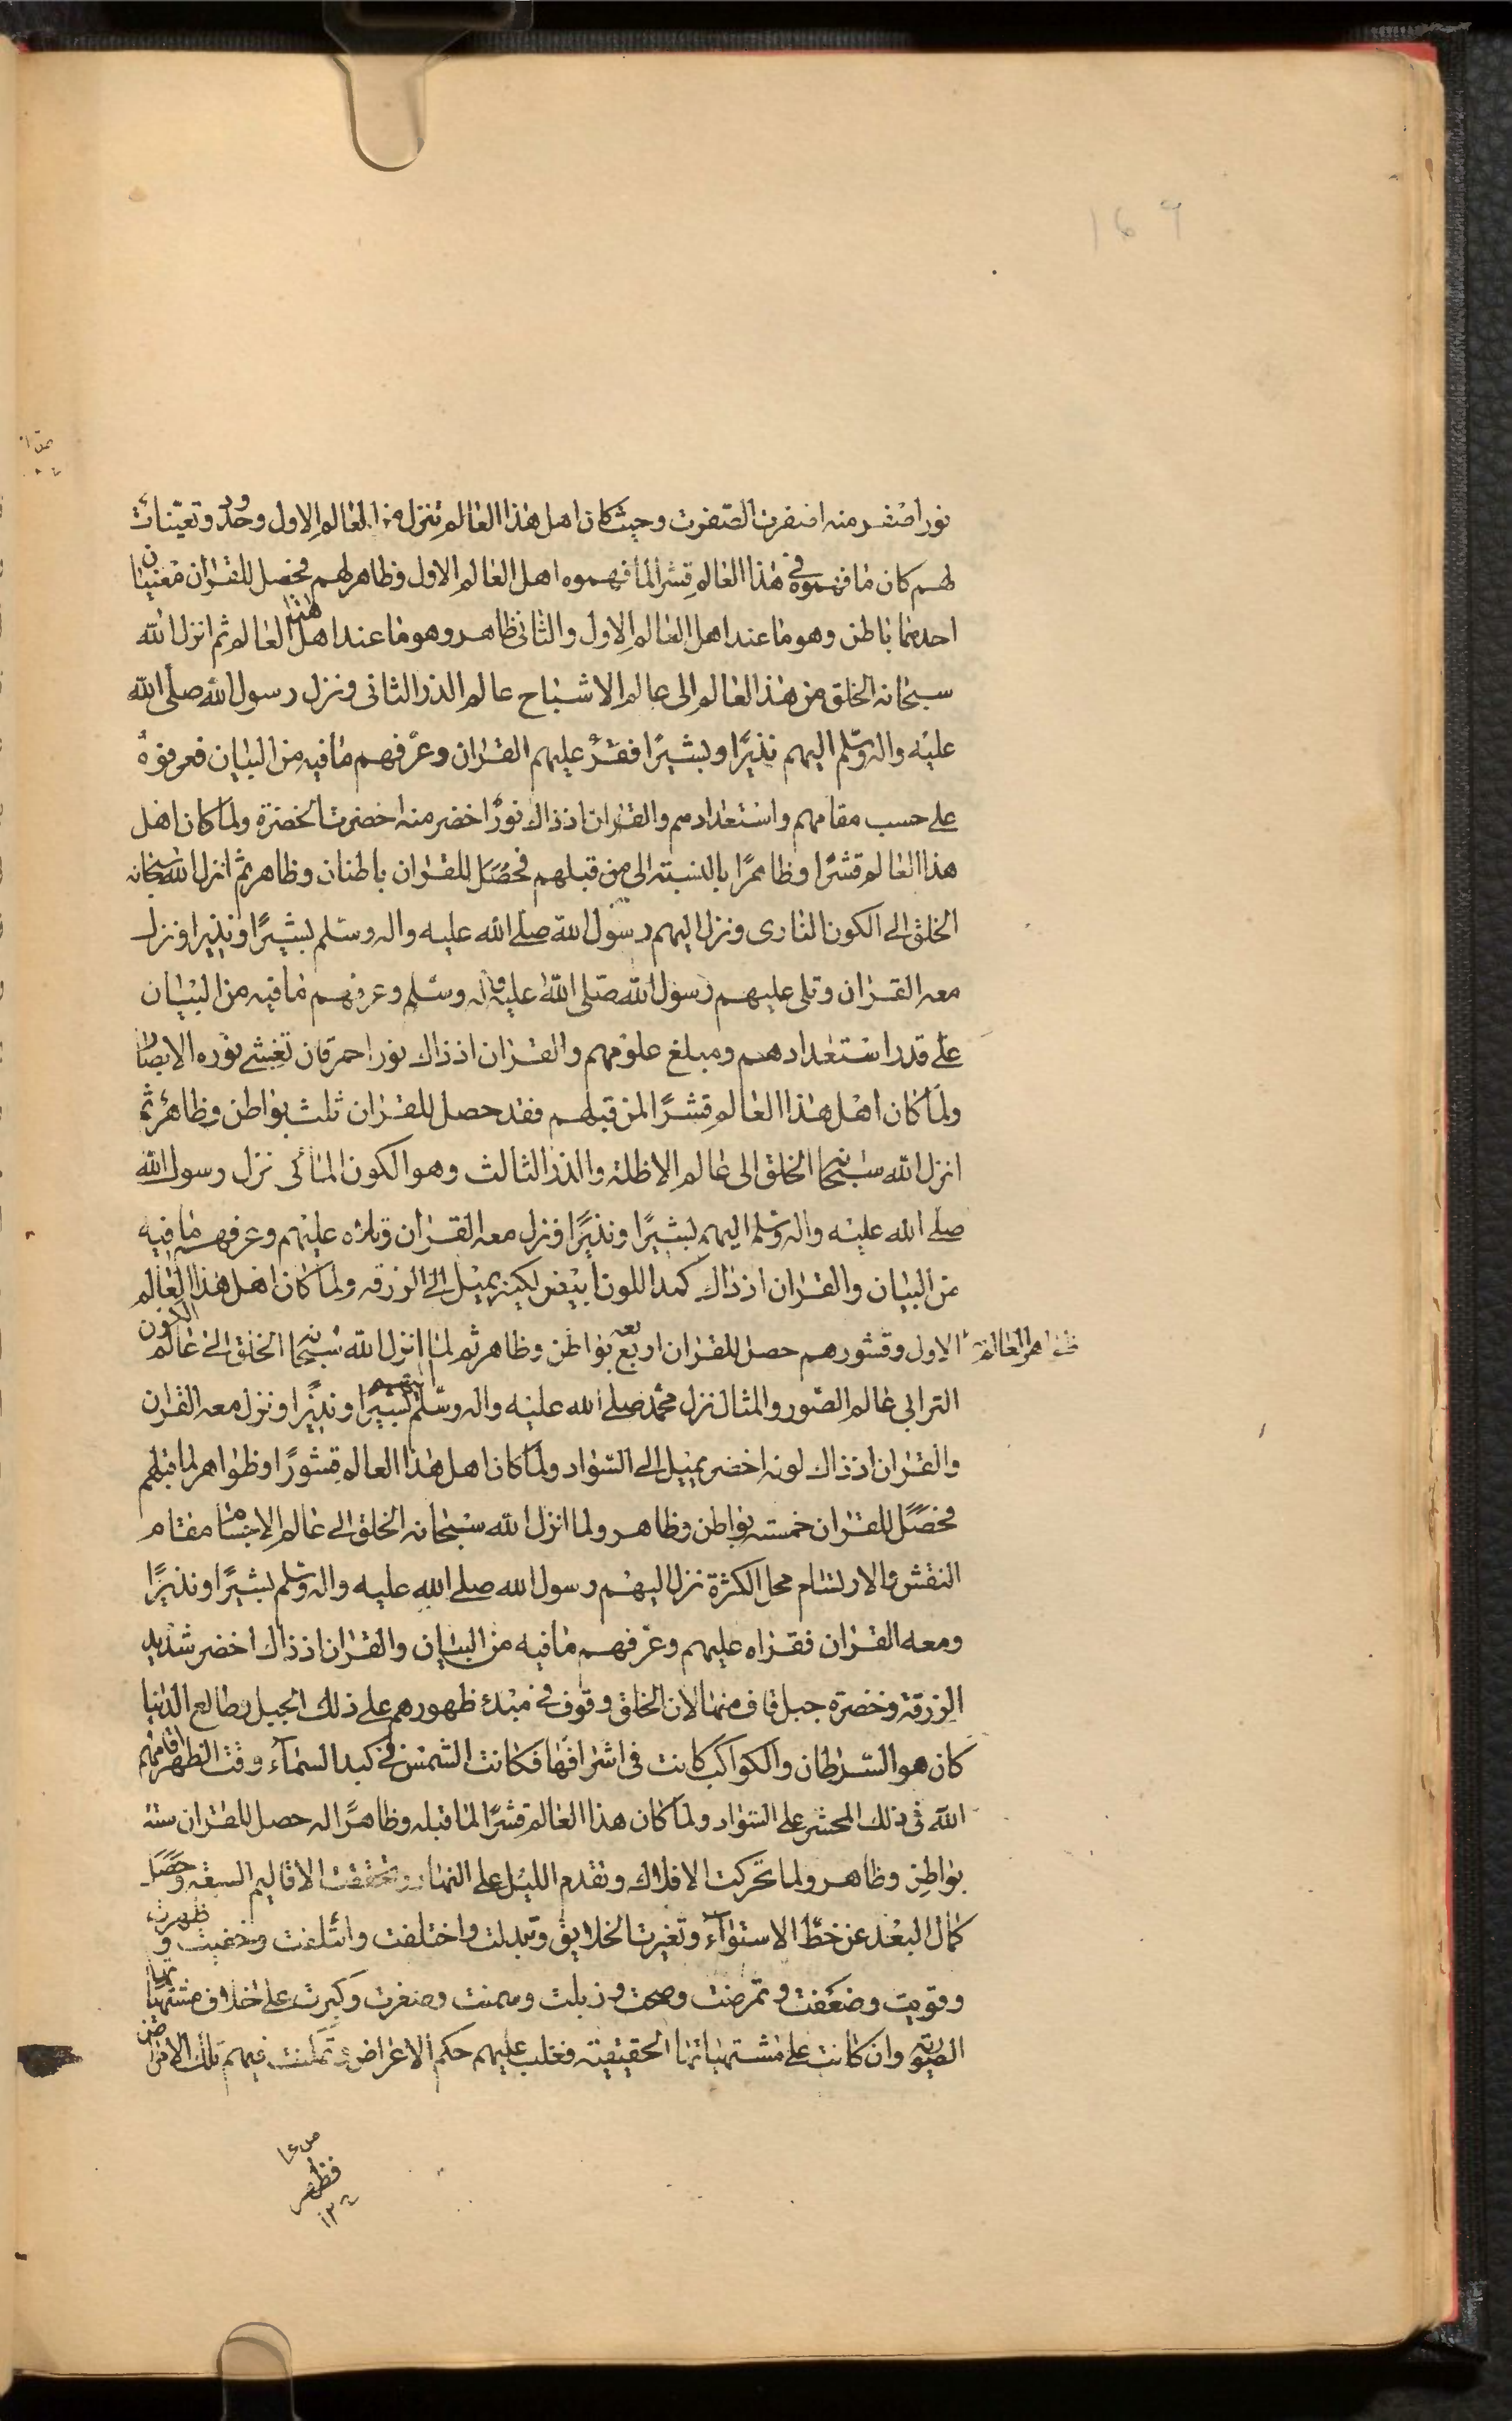 169
نورا صفر منه اصفرت الصفرت وحيث كان اهل هذا العالم تنزل من العالم الاول وحدود وتعينات
لهم كان ما فهموه في هذا العالم قشرا لما فهموه اهل العالم الاول وظاهر لهم فحصل للقران معنيان
احدهما باطن وهو ما عند اهل العالم الاول والثاني ظاهر وهو ما عند اهل هذا العالم ثم انزل الله
سبحانه الخلق من هذا العالم الى عالم الاشباح عالم الذر الثاني ونزل رسول الله صلى الله
عليه واله وسلم اليهم نذيرًا وبشيرًا فقرء عليهم القران وعرفهم ما فيه من البيان فعرفوه
على حسب مقامهم واستعدادهم والقران اذ ذاك نورًا اخضر منه اخضرت الخضرة ولما كان اهل
هذا العالم قشرًا وظاهرًا بالنسبة الى من قبلهم فحصل للقران باطنان وظاهر ثم انزل الله سبحانه
الخلق الى الكون الناري ونزل اليهم رسول الله صلى الله عليه واله وسلم بشيرًا ونذيرا ونزل
معه القران وتلى عليهم رسول الله صلى الله عليه واله وسلم وعرفهم ما فيه من البيان
على قدر استعدادهم ومبلغ علومهم والقران اذ ذاك نور احمر قان تغشى نوره الابصار
ولما كان اهل هذا العالم قشرًا لمن قبلهم فقد حصل للقران ثلث بواطن وظاهر ثم
انزل الله سبحانه الخلق الى عالم الاظلة والذر الثالث وهو الكون المائي نزل رسول الله
صلى الله عليه واله وسلم اليهم بشيرًا ونذيرًا ونزل معه القران وتلاه عليهم وعرفهم ما فيه
من البيان والقران اذ ذاك كمد اللون ابيض لكنه يميل الى الزرقه ولما كان اهل هذا العالم
ظواهر العالم الاول وقشورهم حصل للقران اربعة بواطن وظاهر ثم لما انزل الله سبحانه الخلق الى عالم الكون
الترابي عالم الصور والمثال نزل محمد صلى الله عليه واله وسلم اليهم بشيرًا ونذيرًا ونزل معه القران
والقران اذ ذاك لونه اخضر يميل الى السواد ولما كان اهل هذا العالم قشورًا وظواهر لما قبلهم
فحصل للقران خمسة بواطن وظاهر ولما انزل الله سبحانه الخلق الى عالم الاجسام مقام
النقش والارتسام محل الكثرة نزل اليهم رسول الله صلى الله عليه واله وسلم بشيرًا ونذيرًا
ومعه القران فقراه عليهم وعرفهم ما فيه من البيان والقران اذ ذاك اخضر شديد
الزرقة وخضرة جبل قاف منها لان الخلق وقوف في مبدء ظهورهم على ذلك الجبل وطالع الدنيا
كان هو السرطان والكواكب كانت في اشرافها فكانت الشمس في كبد السماء وقت الظهر اقامهم
الله في ذلك المحشر على السواد ولما كان هذا العالم قشرًا لما قبله وظاهرًا له حصل للقران ستة
بواطن وظاهر ولما تحركت الافلاك وتقدم الليل على النهار وتحققت الاقاليم السبعة وحصل
كمال البعد عن خط الاستواء وتغيرت الخلايق وتبدلت واختلفت وائتلفت وخفيت وظهرت
وقويت وضعفت وتمرضت وصحت وذبلت وسمنت وصغرت وكبرت على خلاف مشتهياتها
الصورية وان كانت على مشتهياتها الحقيقية فغلب عليهم حكم الاعراض وتمكنت فيهم تلك الامراض